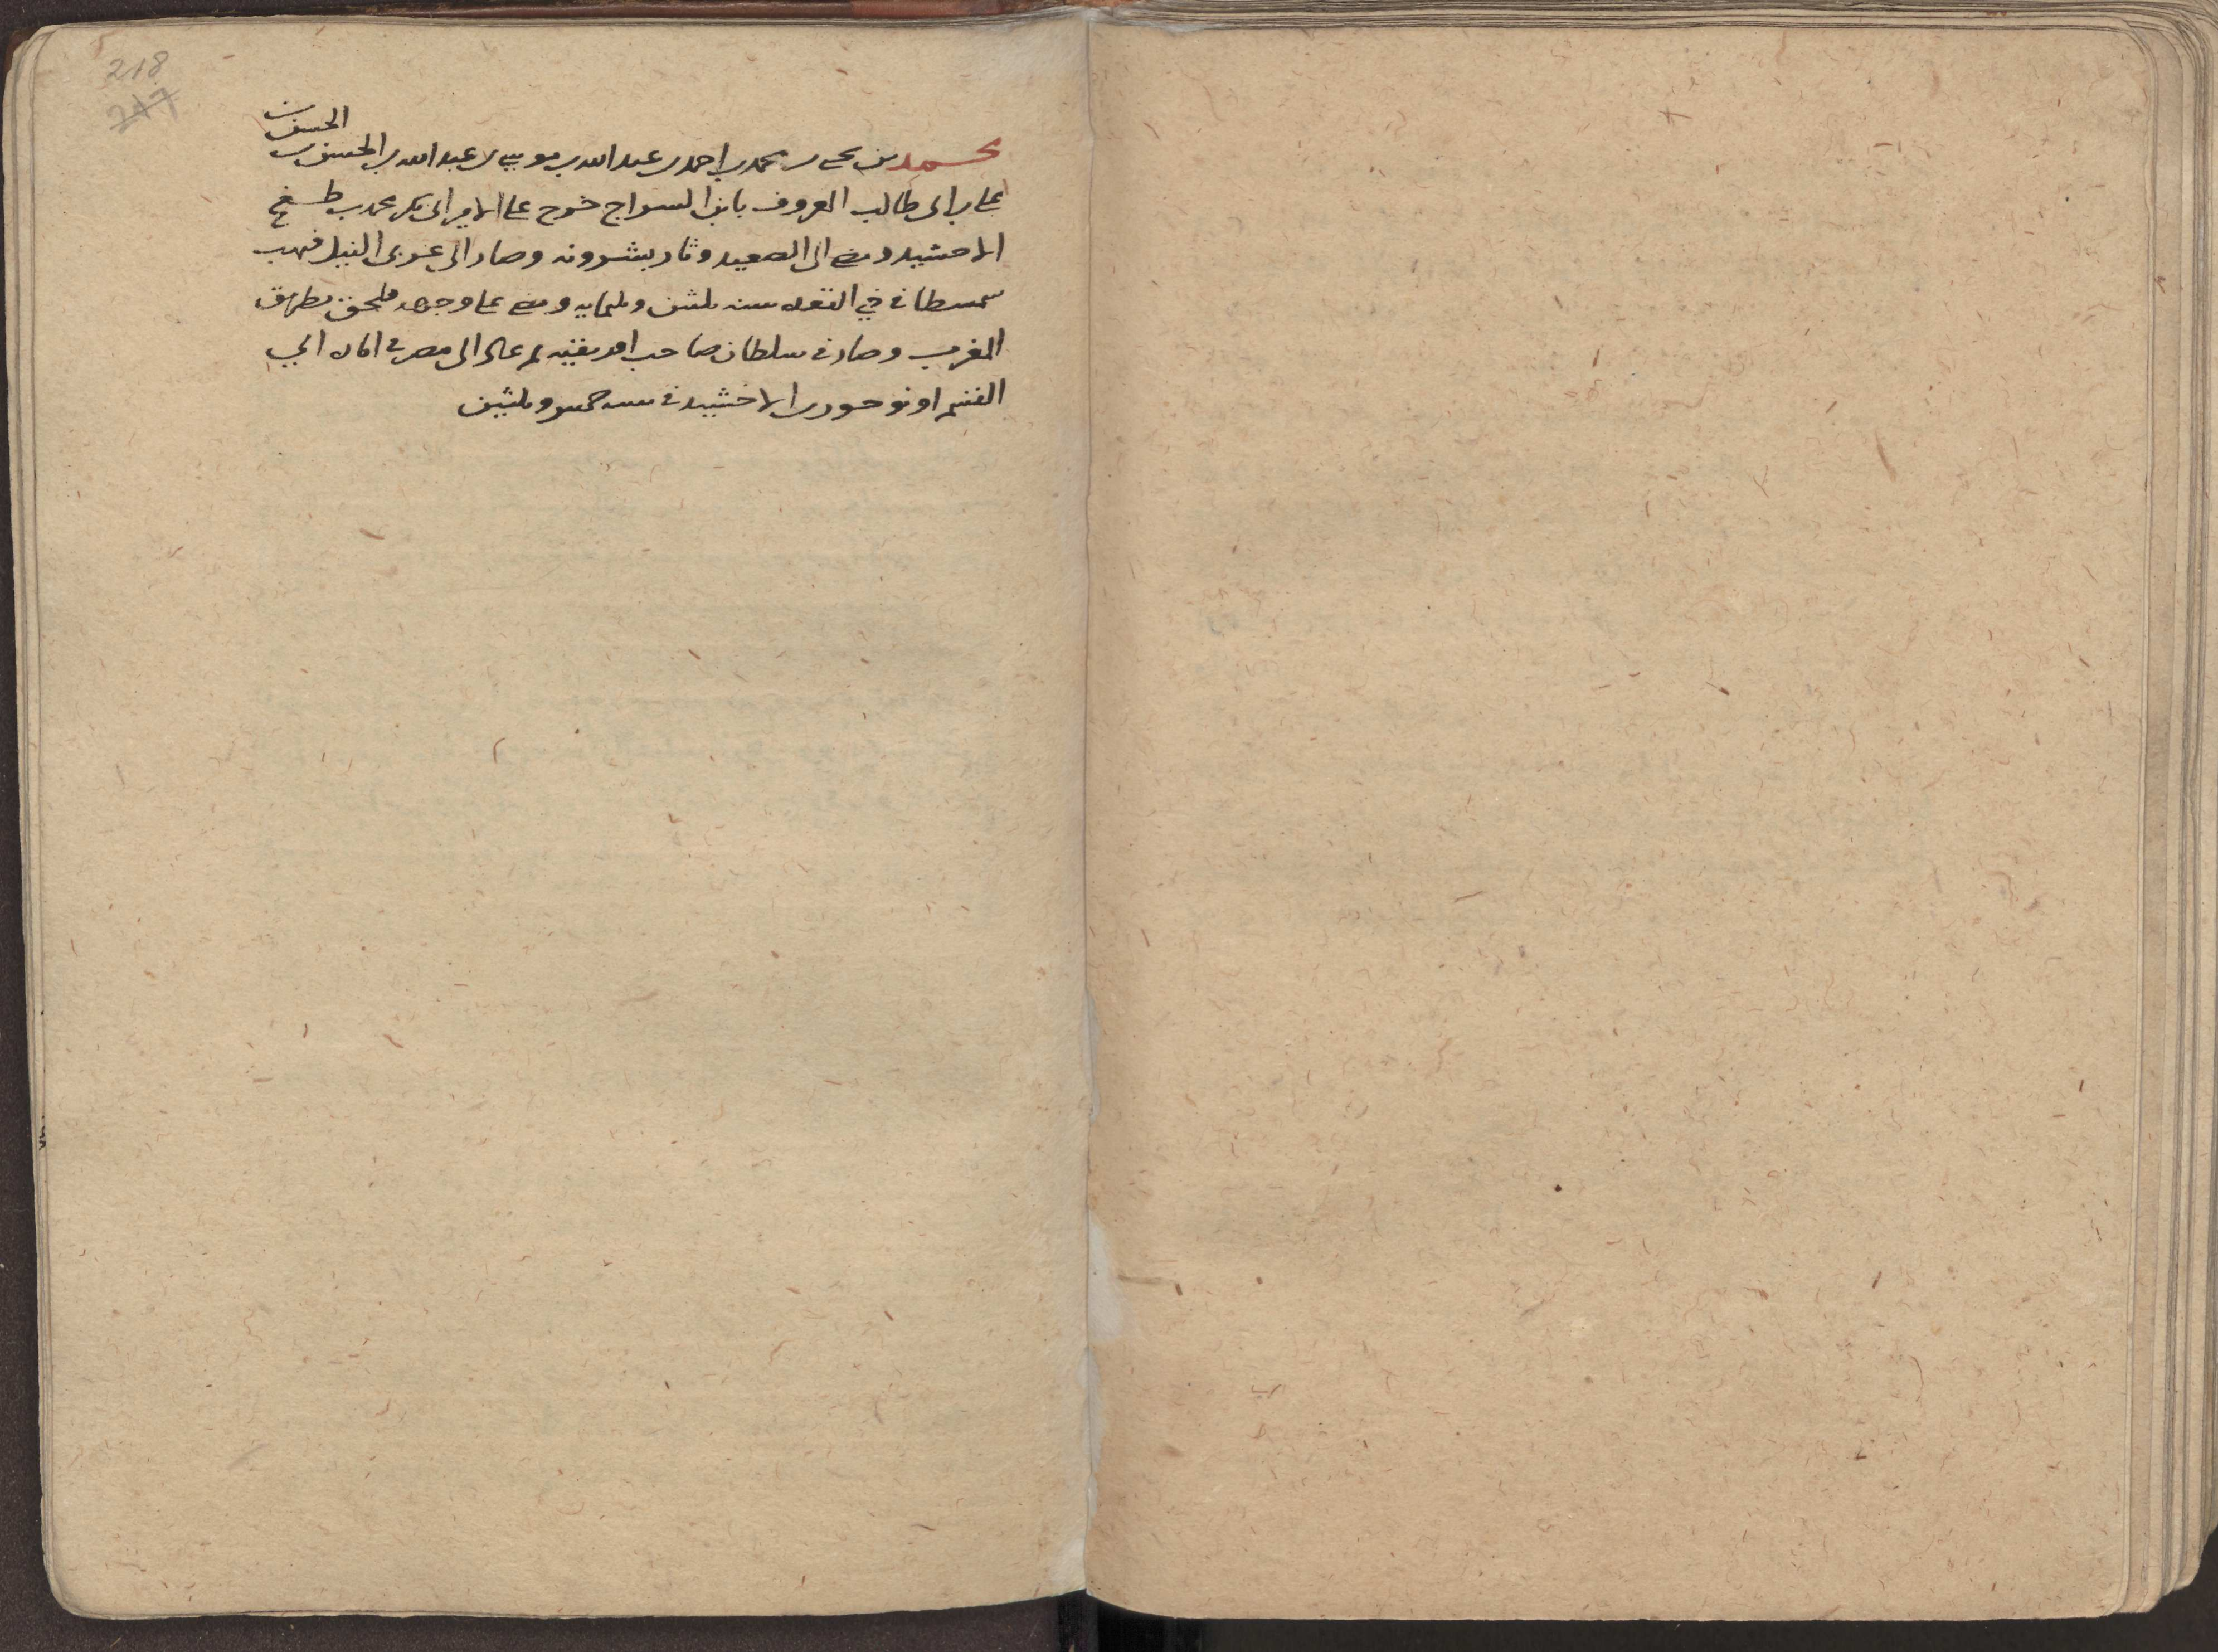 218
217
الحسن بن
محمد بن يحيى بن محمد بن احمد بن عبد الله بن موسى بن عبد الله بن الحسن بن
على بن ابى طالب المعروف بابن السراج خرج على الامير ابى بكر محمد بن طغج
الاخشيد ومضى الى الصعيد وثار بشرونه وصار الى غربى النيل فنهب
سمسطا فى ذي القعده سنه ثلثين وثلثمايه ومضى على وجهه فلحق بطريق
المغرب وصار فى سلطان صاحب افريقيه ثم عاد الى مصر فى امارة ابي
القسم اونوجور بن الاخشيد فى سنه خمس وثلثين